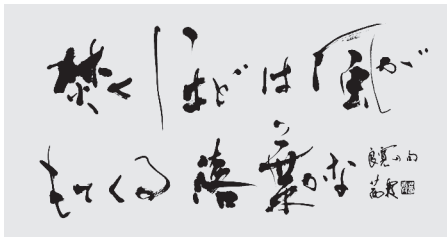 焚くほどは風が
もてくる落葉かな
良寛の句